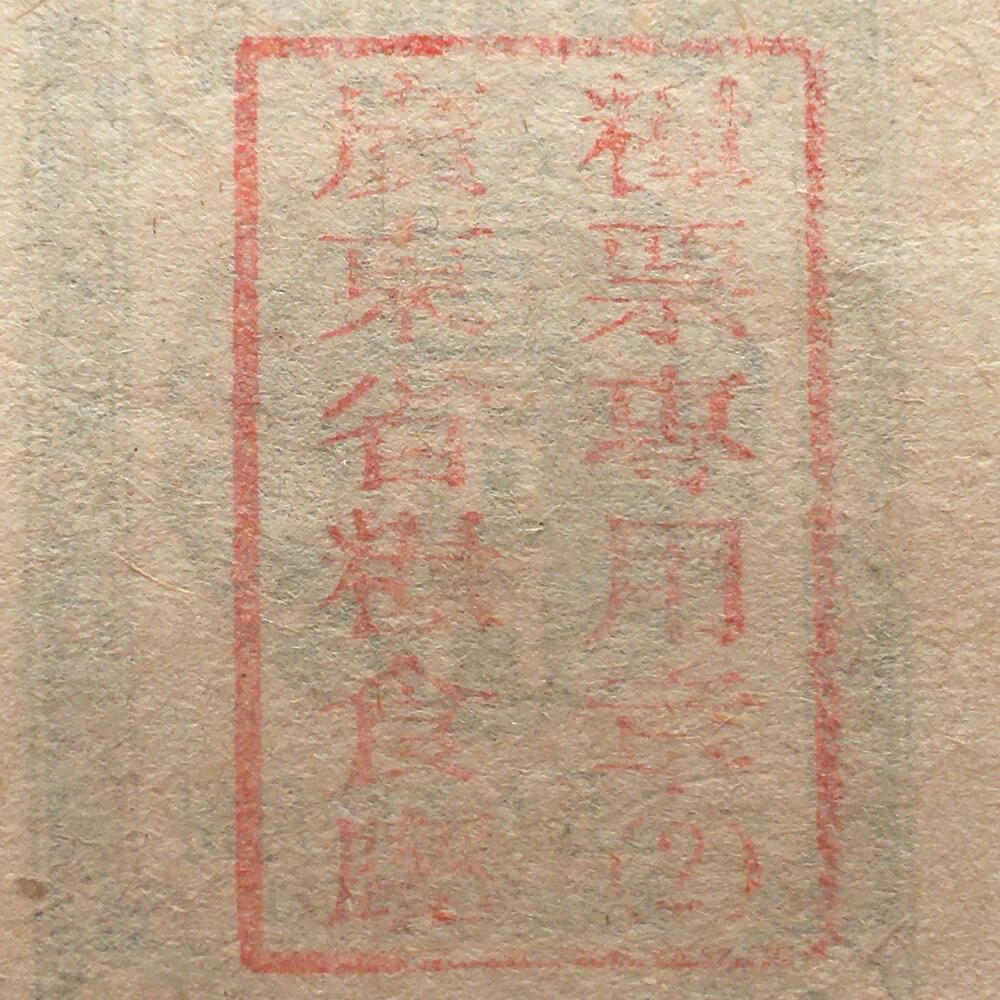 廣東省糧食廳
糧票專用章(2)